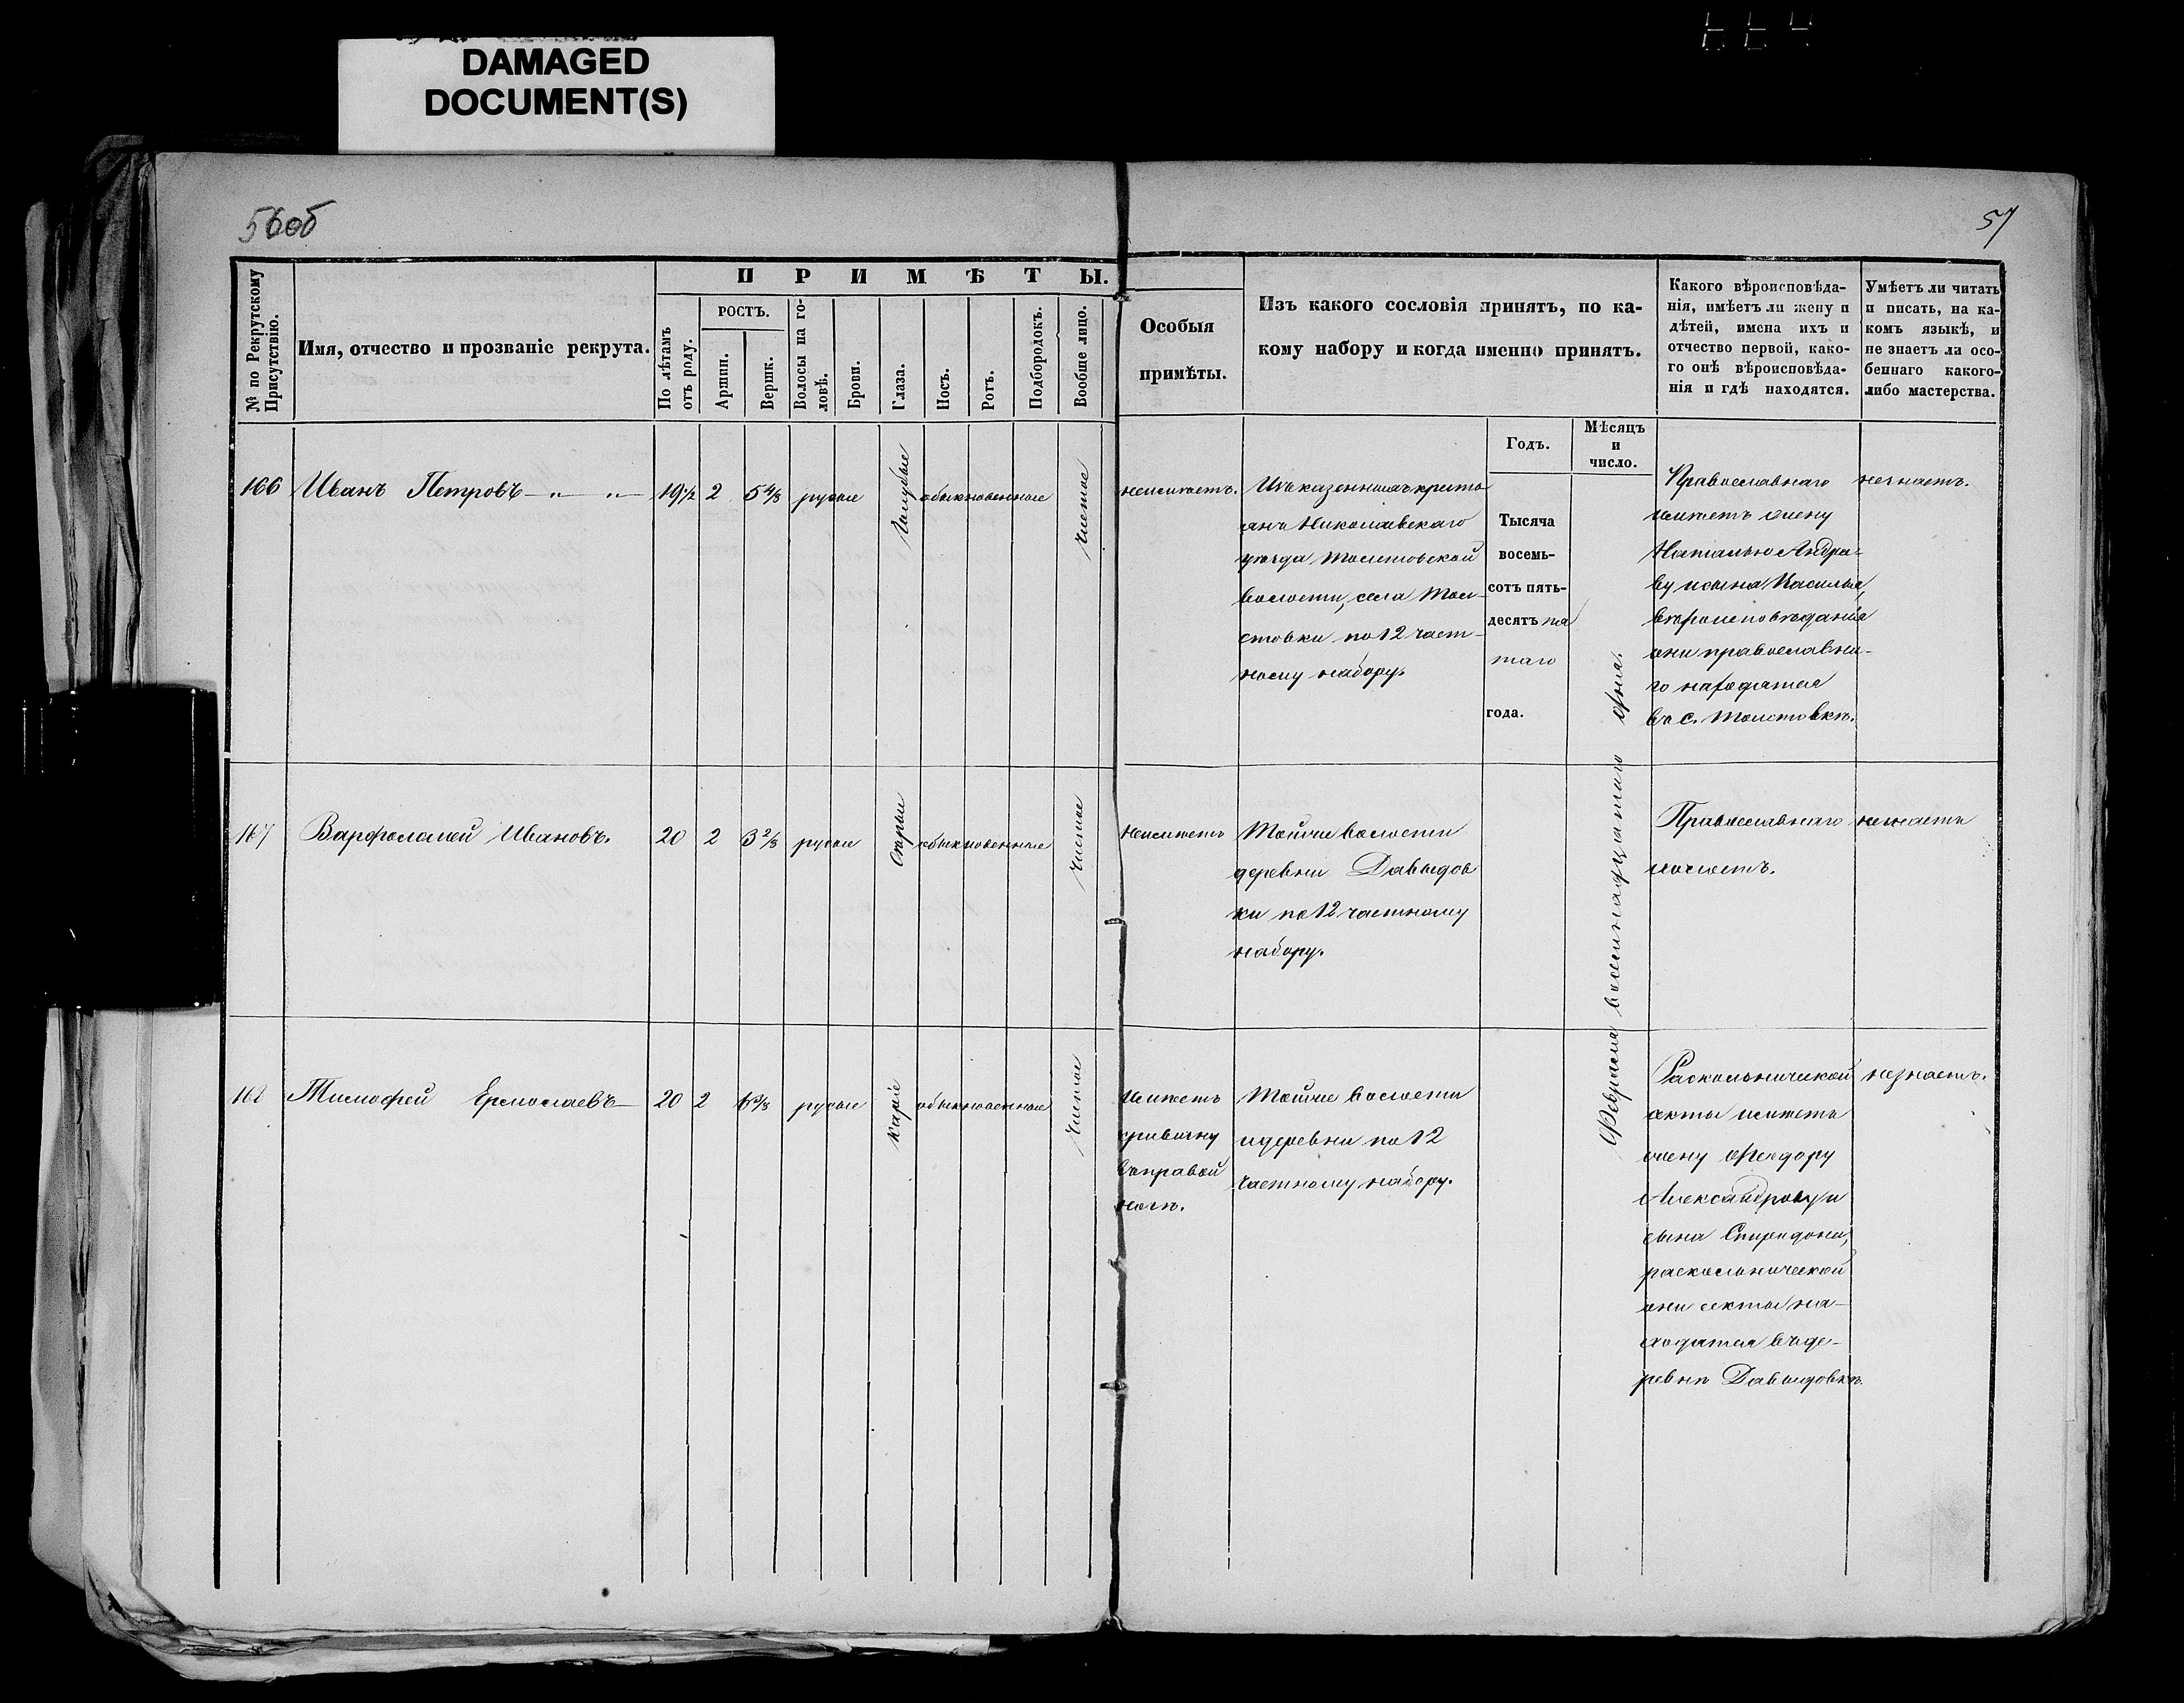 DAMAGED
DOCUMENT(S)
56об
57
№ по Рекрутскому
Присутствію.
Имя, отчество и прозваніе рекрута.
ПРИМѢТЫ.
По лѣтамъ
отъ роду.
РОСТЪ.
Аршин.
Вершк.
Волосы на го-
ловѣ.
Брови.
Глаза.
Носъ.
Ротъ.
Подбородокъ.
Вообще лицо.
Особыя
примѣты.
Изъ какого сословія принятъ, по ка-
кому набору и когда именно принятъ.
Какого вѣроисповѣда-
нія, имѣетъ ли жену и
дѣтей, имена ихъ и
отчество первой, како-
го онѣ вѣроисповѣда-
нія и гдѣ находятся.
Умѣетъ ли читать
и писать, на ка-
комъ языкѣ, и
не знаетъ ли осо-
беннаго какого-
либо мастерства.
Годъ.
Мѣсяцъ
и
число.
166
Иванъ Петровъ — „ — „ —
19½
2
5 4/8
русые
Голубые
обыкновенные
Чистое
неимѣетъ.
Изъ казенныхъ кресть
янъ Николаевскаго
уѣзда Толстовской
волости, села Тол-
стовки по 12 част-
ному набору.
Тысяча
восемь-
сотъ пять-
десятъ пя
таго
года.
Февраля восемнадцатаго дня.
Православнаго
имѣетъ жену
Наталью Андре-
ву исына Василья,
вѣроисповѣданія
они православна-
го находятся
въ с. Толстовкѣ.
незнаетъ.
167
Варфоломей Ивановъ.
20
2
3 2/8
русые
Сѣрые
обыкновенные
Чистое
неимѣетъ
Тойже волости
деревни Давыдов
ки по 12 частному
набору.
Православнаго
холостъ.
незнаетъ
168
Тимофей Ермолаевъ —
20
2
русые
Каріе
обыкновенные
Чистое
Имѣетъ
кривизну
вправой
ногѣ.
Тойже волости
идеревни по 12
частному набору.
Раскольнической
секты имѣетъ
жену Федору
Александрову и
сына Спиридона,
раскольнической
они секты на-
ходятся въ де-
ревнѣ Давыдовкѣ.
незнаетъ.